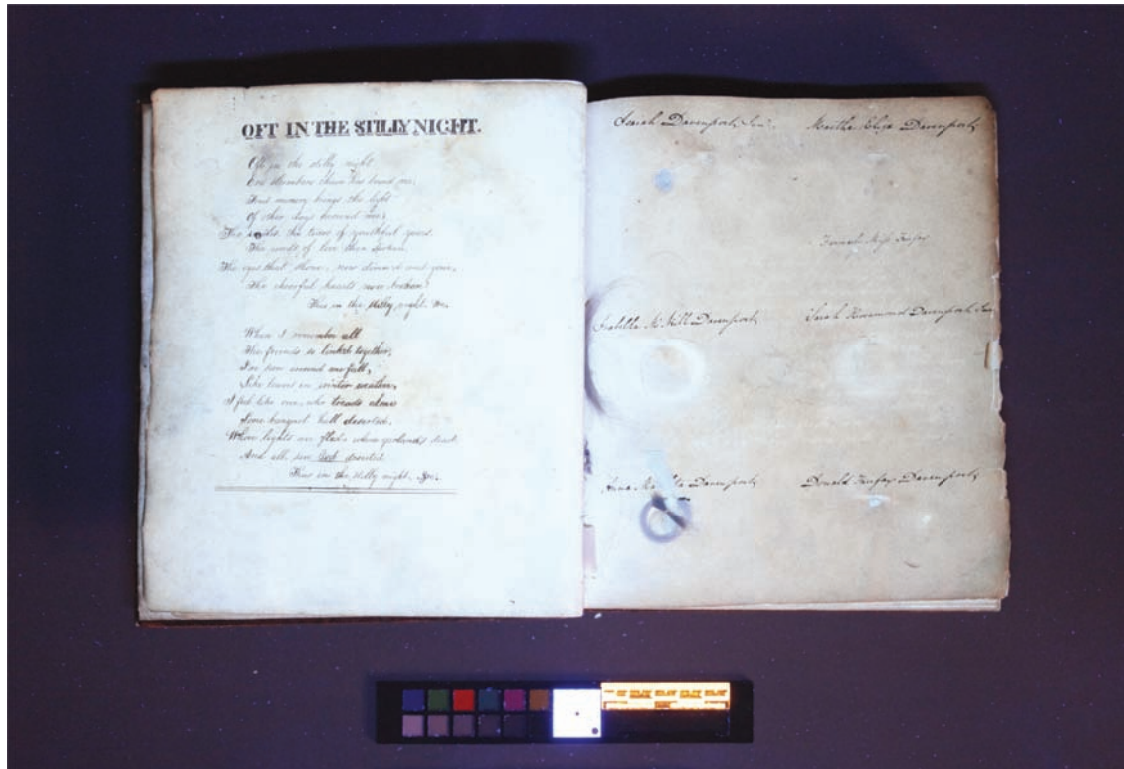 OFT IN THE STILLY NIGHT.
Oft in the stilly night
Ere slumbers chain has bound me,
Fond memory brings the light
Of other days around me;
The smiles, the tears of youthful years
The words of love then spoken
The eyes that shone, now dimm'd and gone,
The cheerful hearts now broken!
Thus in the stilly night &c.
When I remember all
The friends so link'd together,
I've seen around me fall,
Like leaves in winter weather,
I feel like one, who treads alone
Some banquet hall deserted,
Whose lights are fled, whose garlands dead
And all, but departed
Thus in the stilly night. &c.
Isaiah Davenport, Sen.
Martha Eliza Davenport,
Davenport,
Sarah Rosamond Davenport,
Davenport,
Donald Davenport,